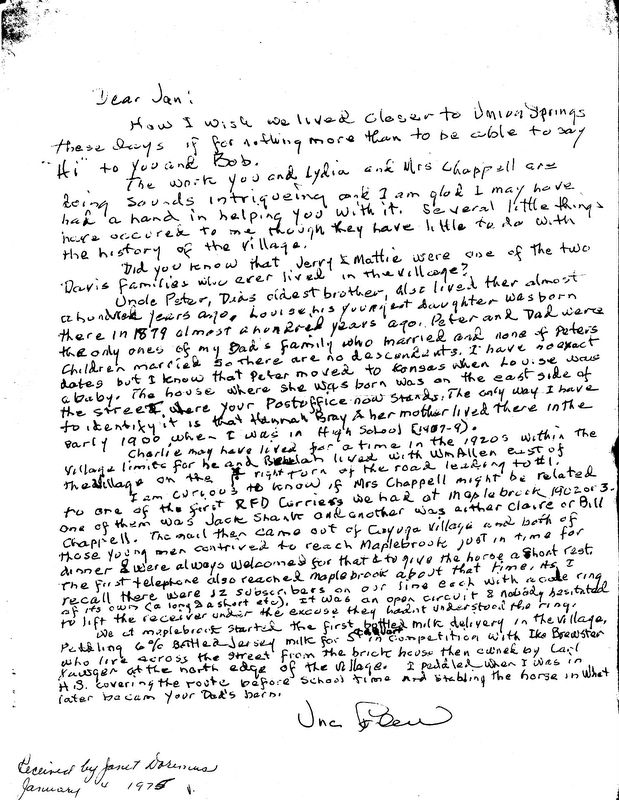 Dear Jan:
How I wish we lived closer to Union Springs
these days if for nothing more than to be able to say
"Hi" to you and Bob.
The work you and Lydia and Mrs Chappell are
doing sounds intrigueing and I am glad I may have
had a hand in helping you with it. Several little things
have occured to me though they have little to do with
the history of the village.
Did you know that Jerry & Mattie were one of the two
Davis families who ever lived in the village?
Uncle Peter, Dads oldest brother, also lived ther almost
a hundred years ago. Louise his youngest daughter was born
there in 1879 almost a hundred years ago. Peter and Dad were
the only ones of my Dad's family who married and none of Peters
Children married so there are no descendents. I have no exact
dates but I know that Peter moved to Kansas when Louise was
a baby. The house where she was born was on the east side of
the street, where your Postoffice now stands. The only way I have
to identify it is that Hannah Bray & her mother lived there in the
early 1900 when I was in High School (1907-9).
Charlie may have lived for a time in the 1920s within the
village limits for he and Beulah lived with Wm Allen east of
the village on the right turn of the road leading to #1.
I am curious to know if Mrs Chappell might be related
to one of the first RFD Carriers we had at Maplebrook 1902 or 3.
One of them was Jack Shank and another was either Claire or Bill
Chappell. The mail then came out of Cayuga Village and both of
those young men contrived to reach Maplebrook just in time for
dinner & were always welcomed for that & to give the horse a short rest.
The first telephone also reached maplebrook about that time. As I
recall there were 12 subscribers on our line each with a code ring
of its own (a long & a short etc). It was an open circuit & nobody hesitated
to lift the receiver under the excuse they hadnt understood the ring.
We at maplebrook started the first bottled milk delivery in the village,
Peddling 6% Bottled Jersey milk for 5¢ a quart in competition with Ike Brewster
who live across the street from the brick house then owned by Carl
Yawger at the north edge of the village. I peddled when I was in
H.S. covering the route before School time and stabling the horse in what
later becam your Dad's barn.
Received by Janet Doremus
January 4 1975